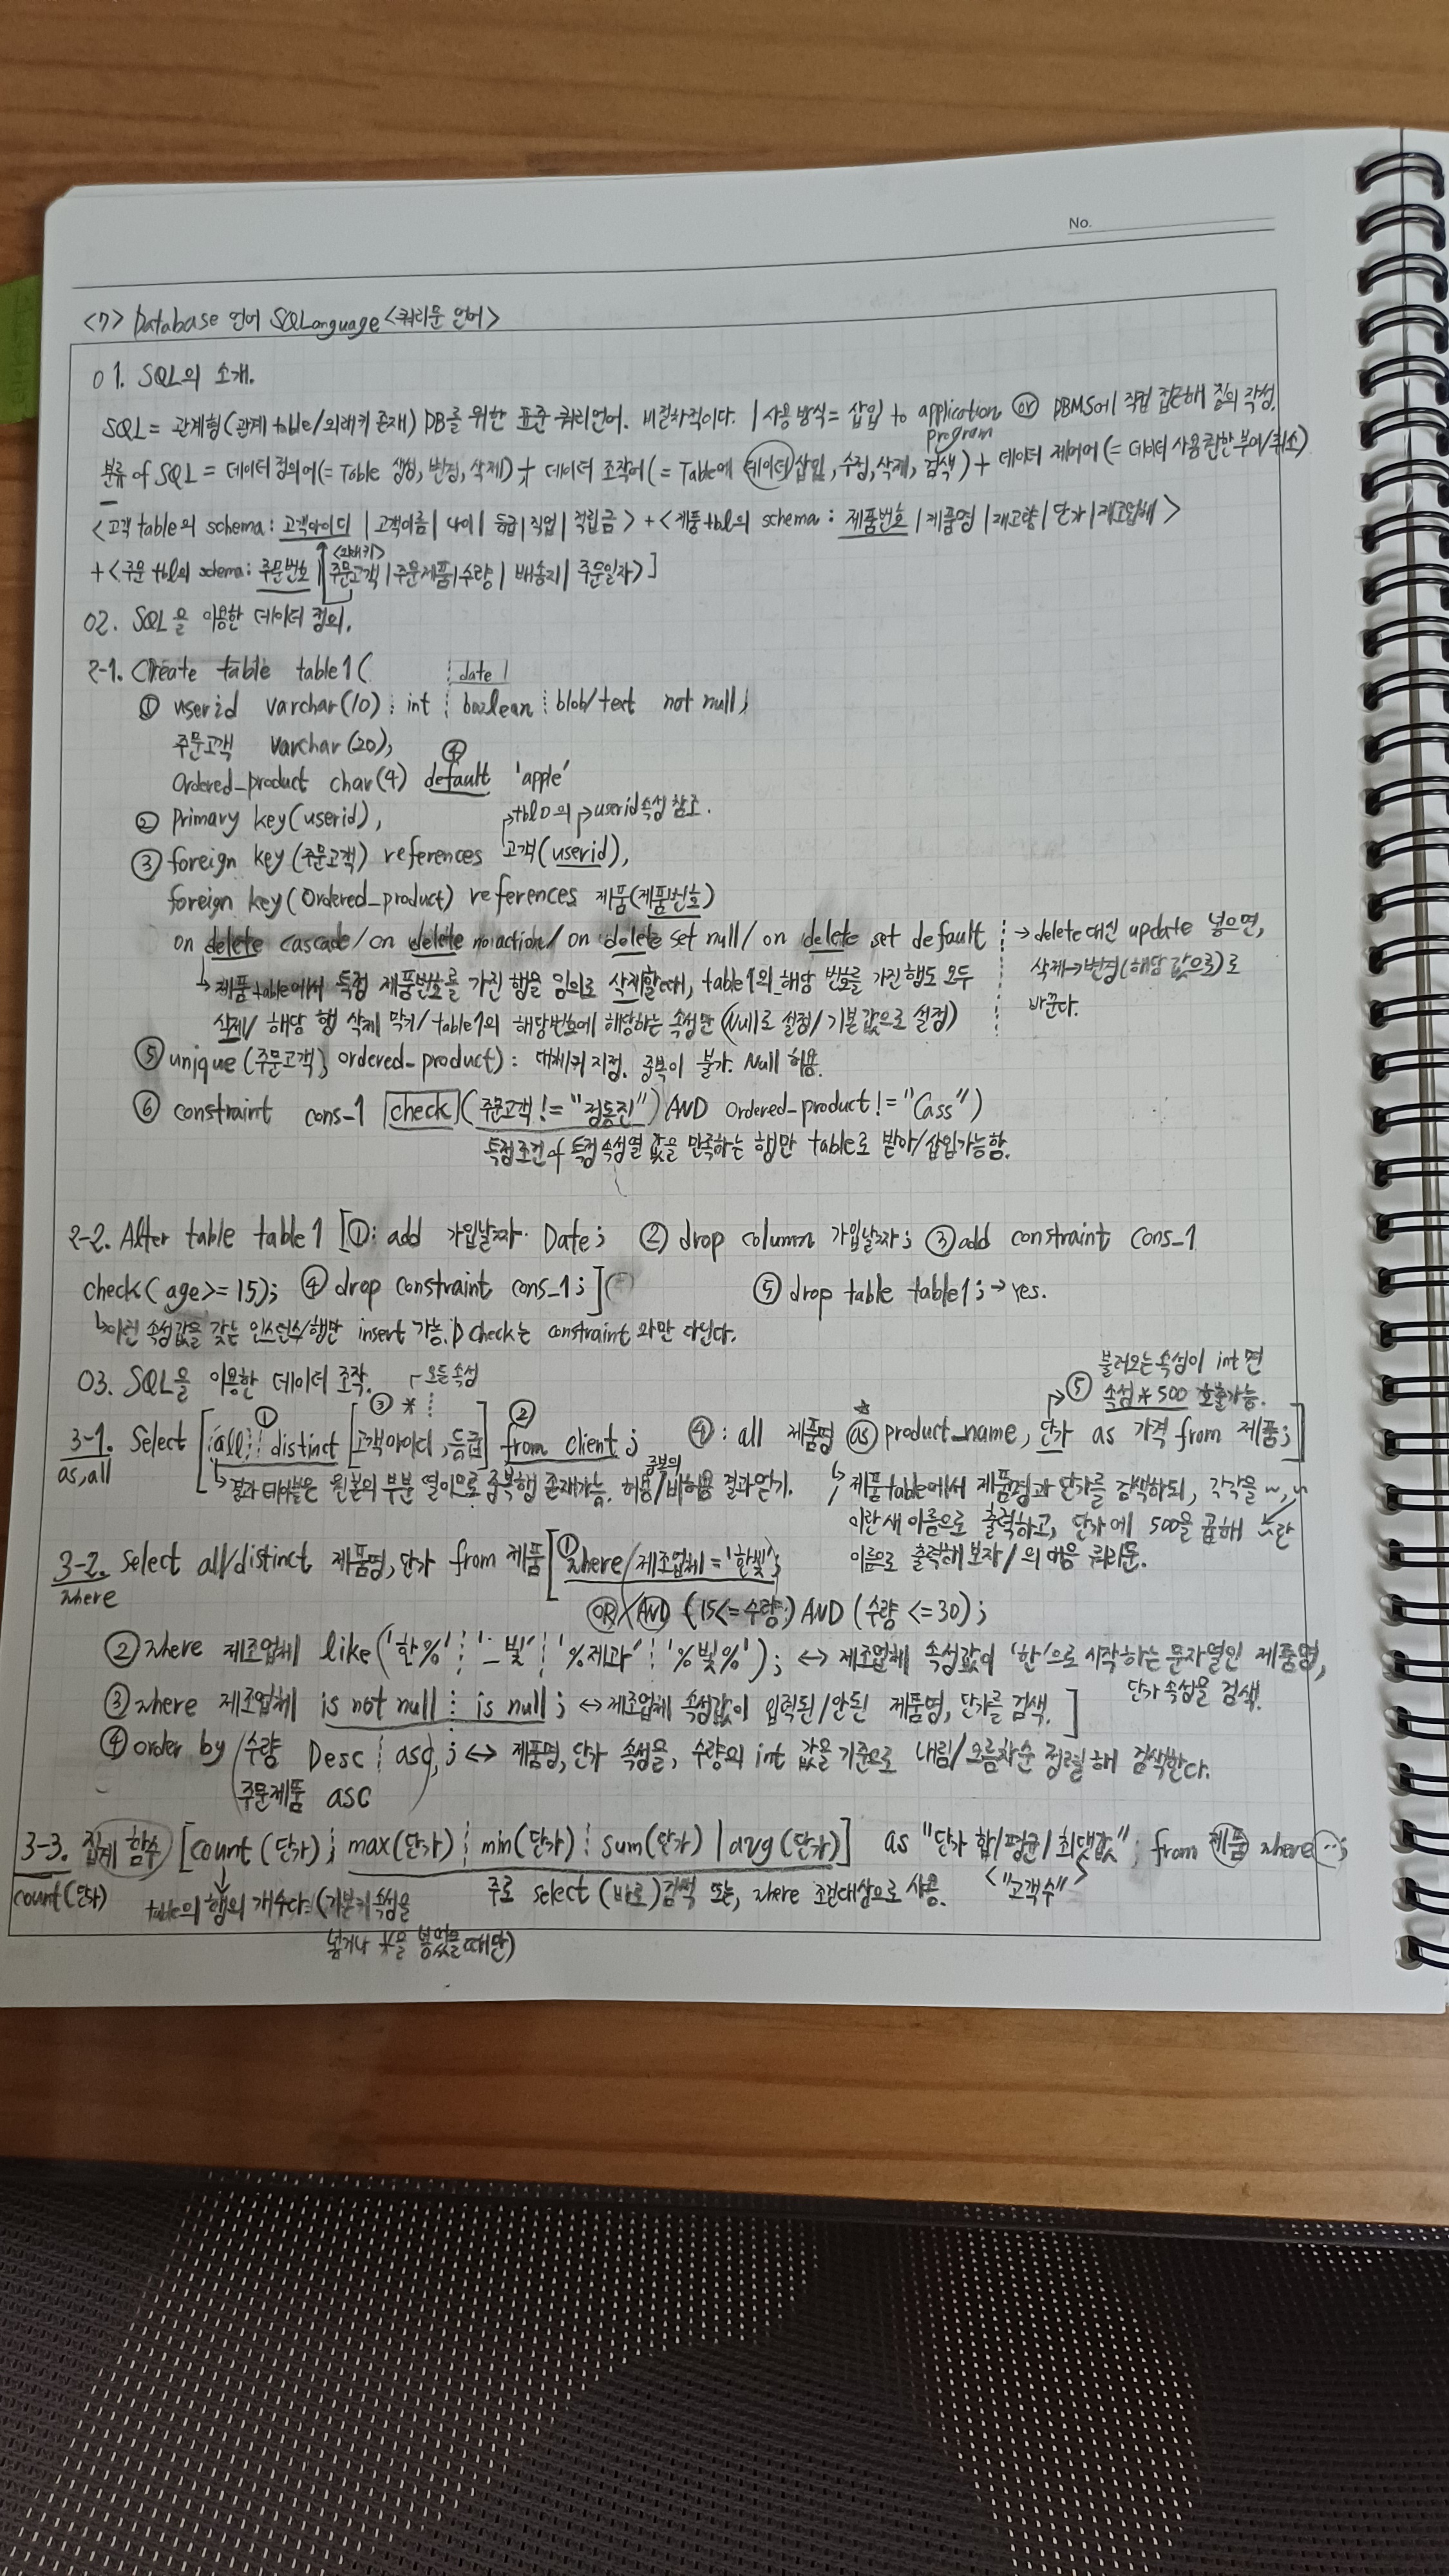 No.
<7> Database 언어 SQLanguage <쿼리문 언어>
01. SQL의 소개.
SQL = 관계형(관계 table/외래키 존재) DB를 위한 표준 쿼리언어. 비절차적이다. | 사용 방식 = 삽입 to application program or DBMS에 직접 접근해 질의 작성.
분류 of SQL = 데이터 정의어(= Table 생성, 변경, 삭제) + 데이터 조작어(= Table에 데이터 삽입, 수정, 삭제, 검색) + 데이터 제어어(= 데이터 사용권한 부여/취소)
<고객 table의 schema : 고객아이디 | 고객이름 | 나이 | 등급 | 직업 | 적립금> + <제품 tbl의 schema : 제품번호 | 제품명 | 재고량 | 단가 | 제조업체>
<외래키>
+ <주문 tbl의 schema : 주문번호 | 주문고객 | 주문제품 | 수량 | 배송지 | 주문일자>]
02. SQL을 이용한 데이터 정의.
2-1. Create table table1(
date |
① userid varchar(10) ┊ int ┊ boolean ┊ blob/text not null,
주문고객 varchar(20),
Ordered_product char(4) ④ default 'apple'
② primary key(userid),
tbl의 userid속성 참조.
③ foreign key(주문고객) references 고객(userid),
foreign key(Ordered_product) references 제품(제품번호)
on delete cascade/on delete no action/on delete set null/on delete set default → delete 대신 update 넣으면,
↳ 제품 table에서 특정 제품번호를 가진 행을 임의로 삭제할때, table1의 해당 번호를 가진 행도 모두 삭제→변경(해당 값으로)로
삭제/ 해당 행 삭제 막기/table1의 해당번호에 해당하는 속성만 (Null로 설정/기본값으로 설정) 바꾼다.
⑤ unique(주문고객, ordered_product) : 대체키 지정. 중복이 불가. Null 허용.
⑥ constraint cons_1 check(주문고객 != "정동진") AND Ordered_product != "Cass")
특정조건 특정 속성열 값을 만족하는 행만 table로 받아/삽입가능함.
2-2. Alter table table1 [①: add 가입날짜 Date; ② drop column 가입날짜; ③ add constraint cons_1
check(age>=15); ④ drop constraint cons_1;] ⑤ drop table table1; → yes.
↳ 이런 속성값을 갖는 인스턴스/행만 insert 가능. check는 constraint 와만 다닌다.
03. SQL을 이용한 데이터 조작.
모든 속성
불러오는 속성이 int면
⑤ 속성*500 호출가능.
3-1. Select [① all ┊ distinct ③ * [고객아이디, 등급] ② from client; ④: all 제품명 as product_name, 단가 as 가격 from 제품;]
as, all
↳ 결과 테이블은 원본의 부분 열이므로 중복행 존재가능. 중복의 허용/비허용 결과얻기.
↳ 제품table에서 제품명과 단가를 검색하되, 각각을 ~, ~
이란 새 이름으로 출력하고, 단가에 500을 곱해 란
이름으로 출력해 보자/의 쿼리문.
3-2. Select all/distinct 제품명, 단가 from 제품 [① where/제조업체='한빛';
where
OR/AND (15<=수량) AND (수량<=30);
② where 제조업체 like('한%' ┊ '_빛' ┊ '%제과' ┊ '%빛%'); ↔ 제조업체 속성값이 '한'으로 시작하는 문자열인 제품명,
단가 속성을 검색.
③ where 제조업체 is not null ┊ is null; ↔ 제조업체 속성값이 입력된/안된 제품명, 단가를 검색.]
④ order by (수량 Desc ┊ asc, ; ↔ 제품명, 단가 속성을, 수량의 int 값을 기준으로 내림/오름차순 정렬해 검색한다.
주문제품 asc
3-3. 집계 함수 [count(단가) ┊ max(단가) ┊ min(단가) ┊ sum(단가) | avg(단가)] as "단가 합/평균/최댓값"; from 제품 where ··;
count(단가)
table의 행의 개수다. (기본키 속성을
넣거나 *을 넣었을때만)
주로 select (바로)검색 또는, where 조건대상으로 사용.
<"고객수">